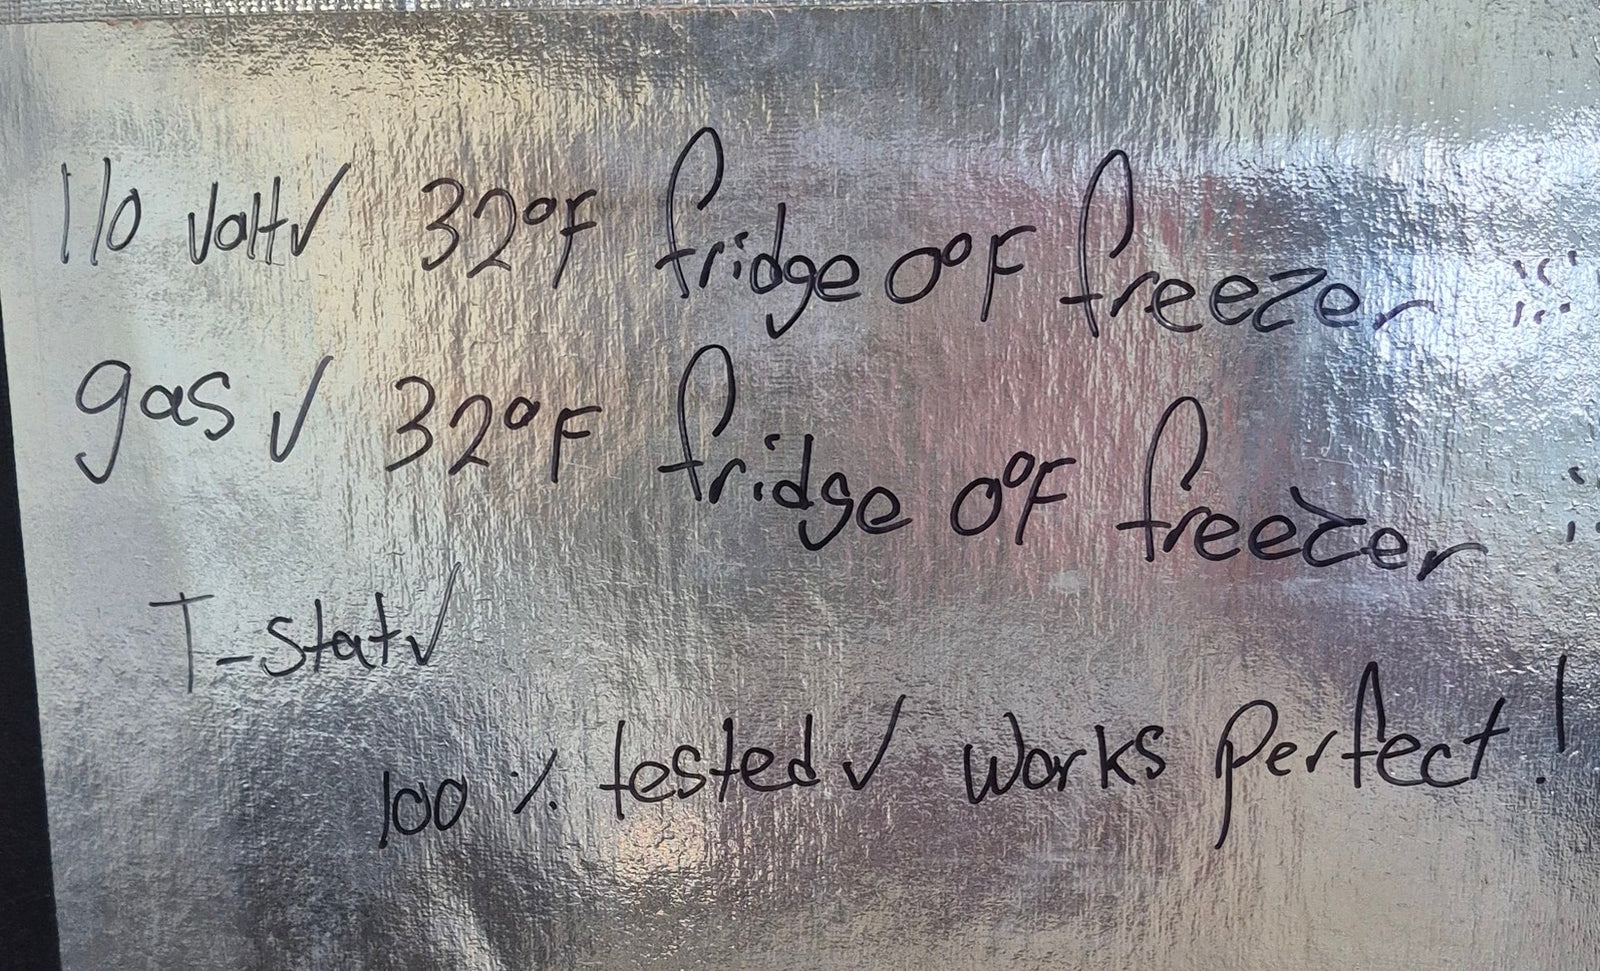 110 Volt✓ 32°F fridge 0°F freezer
gas ✓ 32°F fridge 0°F freezer
T-stat✓
100 % tested✓ works perfect!